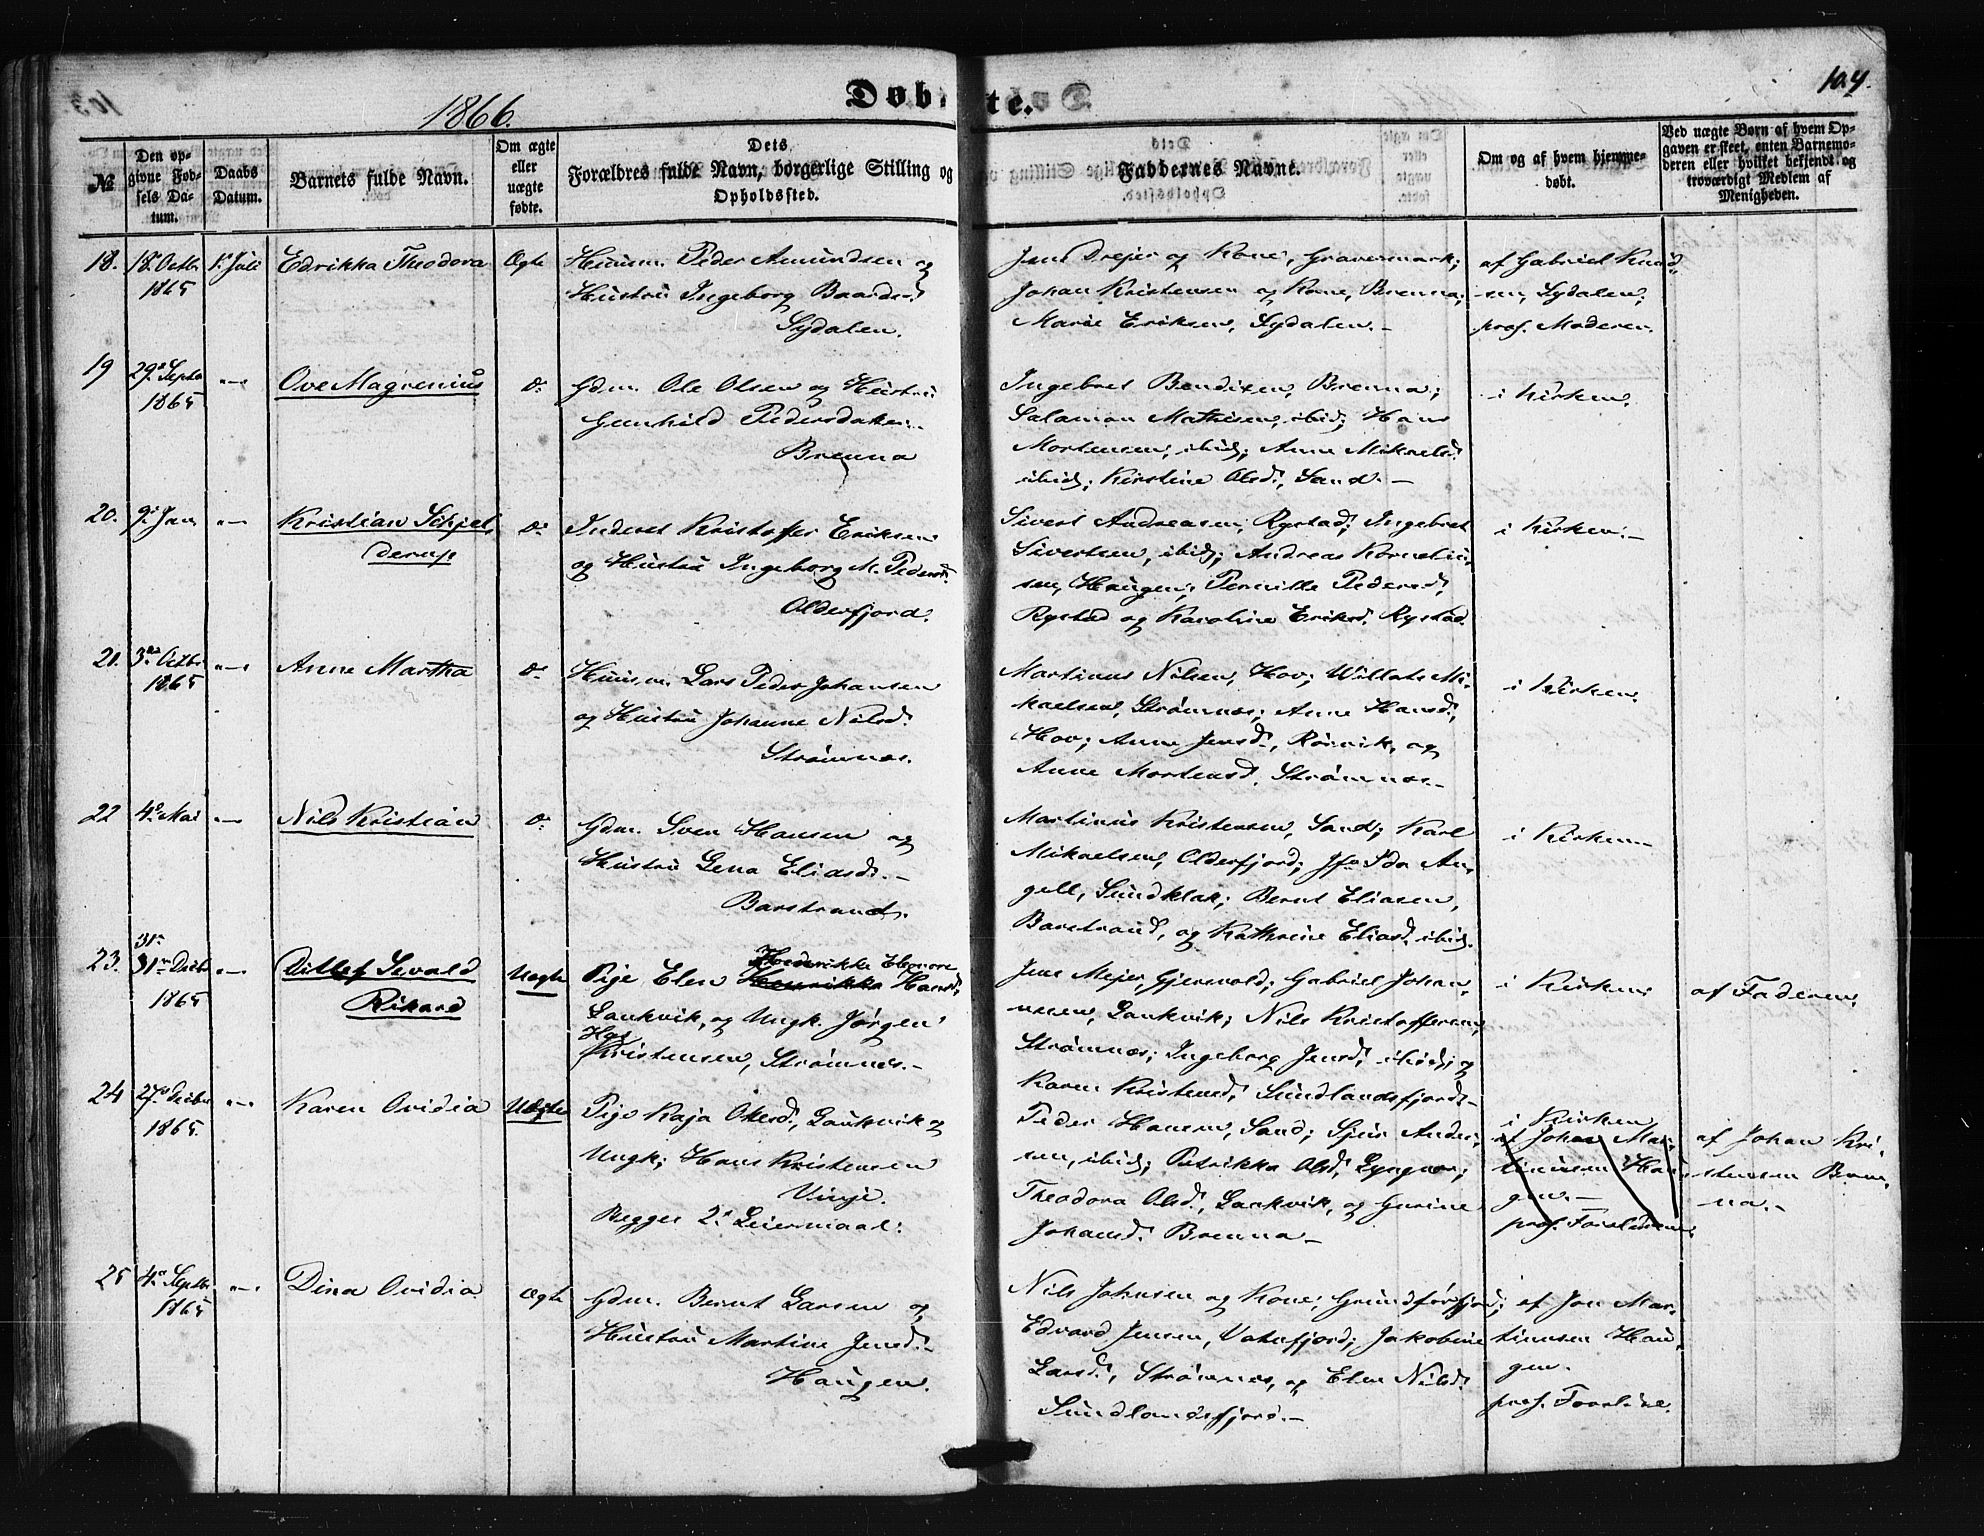 1866.
Døbte.
104.
№
Den opgivne Fødsels Datum.
Daabs Datum.
Barnets fulde Navn.
Om ægte eller uægte fødte.
Dets Forældres fulde Navn, borgerlige Stilling og Opholdssted.
Faddernes Navne.
Om og af hvem hjemmedøbt.
Ved uægte Børn af hvem Opgaven er skeet, enten Barnemoderen eller hvilket bekjendt og troværdigt Medlem af Menigheden.
18. 18. Octbr 1865
1. Juli
Edrikka Theodora
Ægte
Huusm. Peder Amundsen og
Hustru Ingeborg Baardsd.
Sydalen.
Jens Drejer og Kone, Gravermark;
Johan Kristensen og Kone, Brenna;
Marie Eriksen, Sydalen.-
af Gabriel Knud-
sen, Sydalen;
prof. Moderen.
19 29. Septbr 1865
Ove Magrenius
Do
Gdm. Ole Olsen og Hustru
Gunhild Pedersdatter.
Brenna
Ingebret Bendixen, Brenna;
Salamon Mathisen, ibid; Hans
Mortensen, ibid; Anne Mikaelsd.
ibid; Kirstine Olsd., Sand.-
i Kirken.
20. 9. Jan
Kristian Schjel-
derup
Do
Inderst Kristoffer Eriksen
og Hustru Ingeborg M. Pedersd.
Olderfjord.
Sivert Andreasen, Rystad; Ingebret
Sivertsen, ibid; Andreas Korneliu-
sen, Haugen; Pernille Pedersd.,
Rystad og Karoline Eriksd. Rystad.
i Kirken.-
21. 3. Octbr 1865
Anne Martha
Do
Huusm. Lars Peder Johansen
og Hustru Johanne Nilsd.
Strømnes.
Martinus Nilsen, Hov; Willats Mi-
kaelsen, Strømnes; Anne Hansd.,
Hov; Anne Jensd., Rörvik, og
Anne Mortensd., Strømnes.-
i Kirken.
22 4. Mai
Nils Kristian
Do
Gdm. Sven Hansen og
Hustru Lena Eliasd.-
Barstrand.
Martinus Kristensen, Sand; Karl
Mikaelsen, Olderfjord; Jfr. Ida An-
gell, Sundklak; Bernt Eliasen,
Barstrand, og Kathrine Eliasd. ibid.
i Kirken.-
23. 31. Decbr 1865
Ditlef Sevald
Rikard
Uægte
Frederikke Eleonore
Pige Elen Henrikka Hansd.,
Laukvik, og Ungk. Jørgen
Kristensen, Strømnes.-
Jens Mejer, Gjersvold; Gabriel Johan-
nesen, Laukvik; Nils Kristoffersen,
Strømnes; Ingeborg Jensd., ibid; og
Karen Kristensd., Sundlandsfjord.-
i Kirken
af Faderen.
24 27. Decbr 1865.
Karen Ovidia
Uægte
Pige Kaja Olesd., Laukvik og
Ungk; Hans Kristensen
Vinje.
Begges 2. Leiermaal.
Peder Hansen, Sand; Sjur Ander-
sen, ibid; Petrikka Olsd., Lyngvær;
Theodora Olsd., Laukvik, og Gurine
Johansd. Brenna.-
i Kirken
af Johan Mar-
tinusen Hau-
gen.-
prof. Forældrene
af Johan Kri-
stensen Bren-
na.-
25 4. Septbr 1865
Dina Ovidia
Ægte
Gdm. Bernt Larsen og
Hustru Martine Jensd.-
Haugen.
Nils Johnsen og Kone, Grundførfjord;
Edvard Jensen, Vatnfjord; Jakobine
Larsd., Strømnes, og Elen Nilsd.
Sundlandsfjord.-
af Jon Mar-
tinusen Hau-
gen.
prof. Forældre.